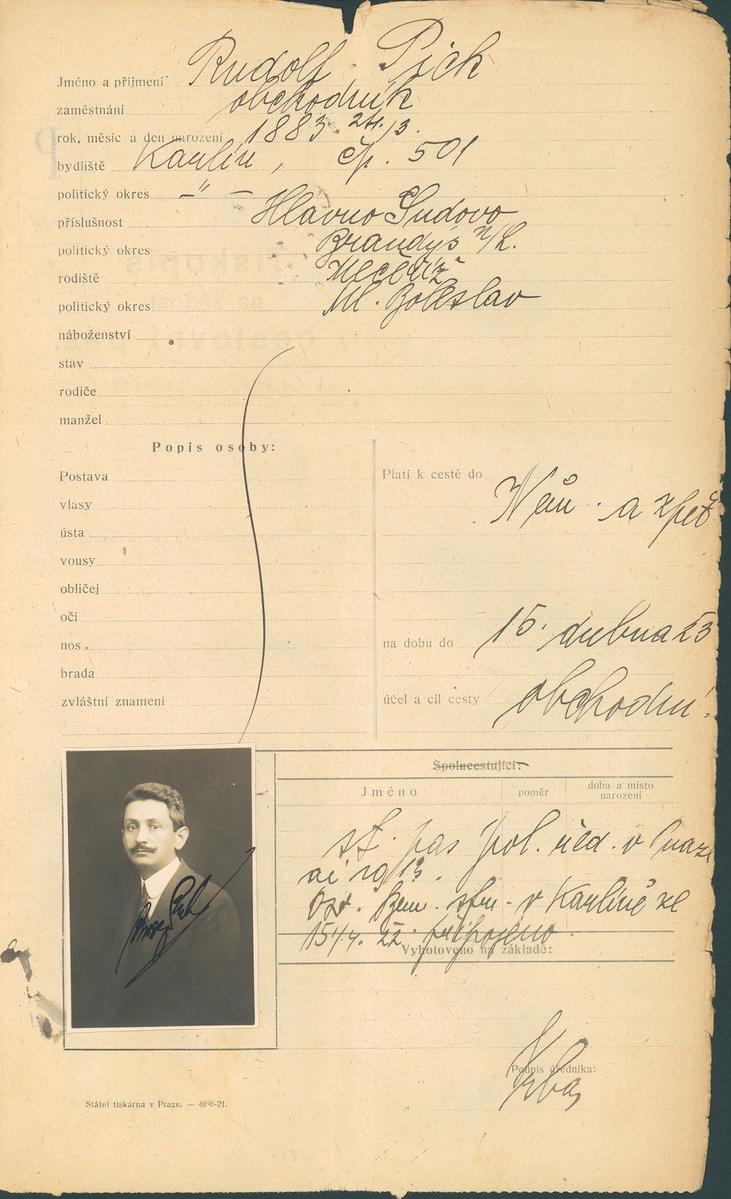 Jméno a příjmení Rudolf Pick
zaměstnání obchodník
rok, měsíc a den narození 1883 24./3.
bydliště Karlín, čp. 501
politický okres – " –
příslušnost Hlavno Sudovo
politický okres Brandýs n/L.
rodiště Mečeříž
politický okres Ml. Boleslav
náboženství
stav
rodiče
manžel
Popis osoby:
Postava
vlasy
ústa
vousy
obličej
oči
nos
brada
zvláštní znamení
Platí k cestě do Něm. a zpět
na dobu do 15. dubna 23
účel a cíl cesty obchodní
Spolucestující:
Jméno poměr doba a místo narození
st. pas pol. řed. v Praze
v Karlíně ze
15/4. 22. připojeno.
Vyhotoveno na základě:
Podpis úředníka:
Státní tiskárna v Praze. — -21.